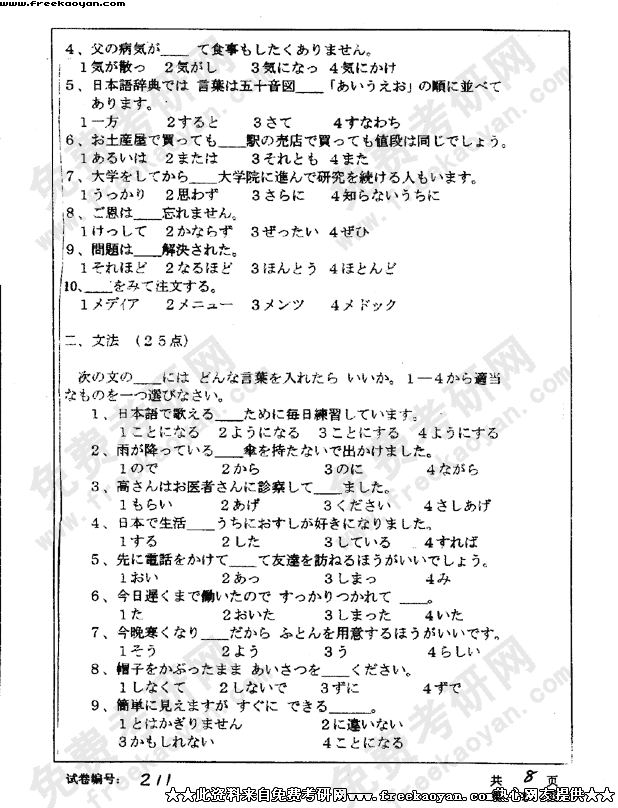 www.freekaoyan.com
4、父の病気が____ て食事もしたくありません。
1気が散っ 2気がし 3気になっ 4気にかけ
5、日本語辞典では 言葉は五十音図____「あいうえお」の順に並べて
あります。
1一方 2すると 3さて 4すなわち
6、お土産屋で買っても____駅の売店で買っても値段は同じでしょう。
1あるいは 2または 3それとも 4また
7、大学をしてから____大学院に進んで研究を続ける人もいます。
1うっかり 2思わず 3さらに 4知らないうちに
8、ご恩は____忘れません。
1けっして 2かならず 3ぜったい 4ぜひ
9、問題は____解決された。
1それほど 2なるほど 3ほんとう 4ほとんど
10、____をみて注文する。
1メディア 2メニュー 3メンツ 4メドック
二、文法 (25点)
次の文の____には どんな言葉を入れたら いいか。1—4から適当
なものを一つ選びなさい。
1、日本語で歌える____ために毎日練習しています。
1ことになる 2ようになる 3ことにする 4ようにする
2、雨が降っている____傘を持たないで出かけました。
1ので 2から 3のに 4ながら
3、高さんはお医者さんに診察して____ました。
1もらい 2あげ 3ください 4さしあげ
4、日本で生活____うちにおすしが好きになりました。
1する 2した 3している 4すれば
5、先に電話をかけて____て友達を訪ねるほうがいいでしょう。
1おい 2あっ 3しまっ 4み
6、今日遅くまで働いたので すっかりつかれて ____。
1た 2おいた 3しまった 4いた
7、今晩寒くなり____だから ふとんを用意するほうがいいです。
1そう 2よう 3う 4らしい
8、帽子をかぶったまま あいさつを____ください。
1しなくて 2しないで 3ずに 4ずで
9、簡単に見えますが すぐに できる______。
1とはかぎりません 2に違いない
3かもしれない 4ことになる
试卷编号: 211 共 8 页
★★此资料来自免费考研网www.freekaoyan.com热心网友提供★★